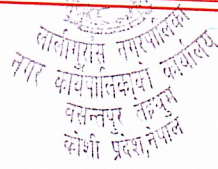 लालीगुराँस नगरपालिका
नगर कार्यपालिकाको कार्यालय
वसन्तपुर तेह्रथुम
कोशी प्रदेश,नेपाल